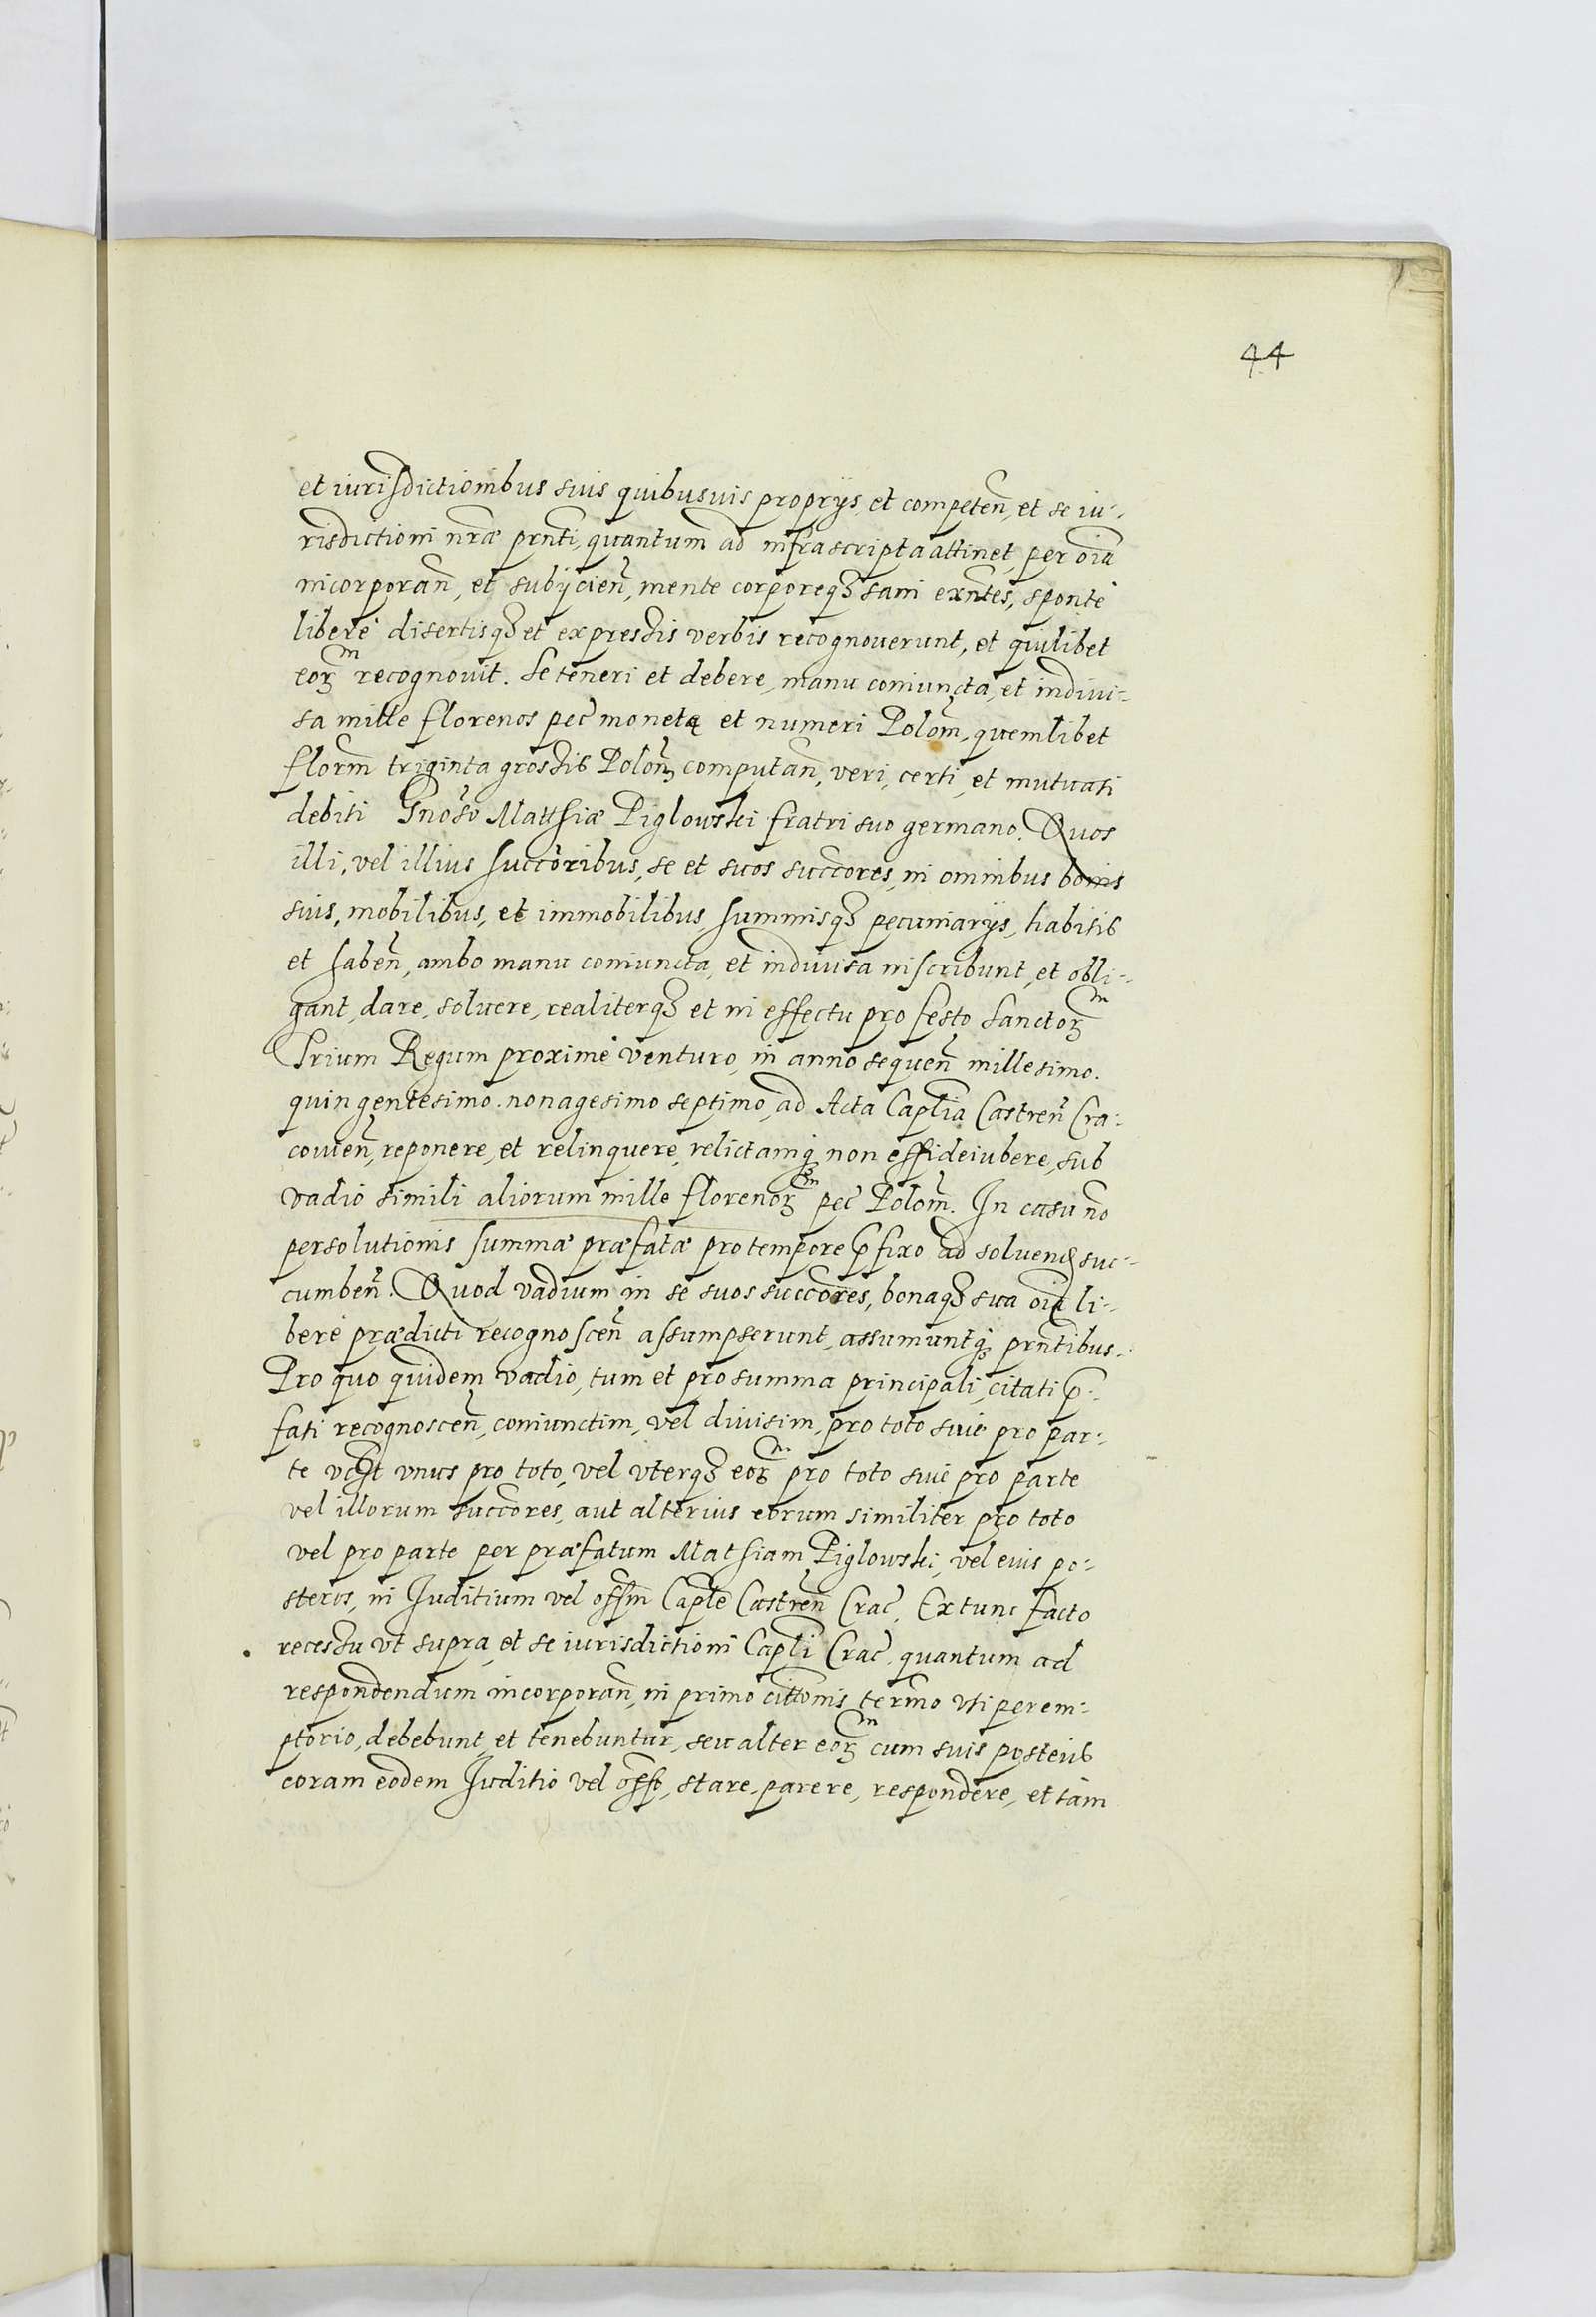 44
et iurisdictionibus suis quibusuis proprijs et competeñ, et se iu-
risdictioni nr̃æ prñti, quantum ad infrascripta attinet, per oĩa
incorporañ, et subijcieñ, mente corporeq3 sani exñtes, sponte
libere disertisq3 et expressis verbis recognouerunt, et quilibet
eorᵐ recognouit. Se teneri et debere, manu coniuncta, et indiui-
sa mille florenos pec̃ monetę et numeri Poloñ, quemlibet
florm̃ triginta grossis Poloñ computañ, veri, certi, et mutuati
debiti Gnõso Matthiæ Piglowski fratri suo germano. Quos
illi, vel illius succõribus, se et suos succc̃ores, in omnibus bonis
suis, mobilibus, et immobilibus, summisq3 pecuniarijs, habitis
et habeñ, ambo manu coniuncta, et indiuisa inscribunt, et obli-
gant, dare, soluere, realiterq3 et in effectu pro festo Sanctorᵐ
Trium Regum proxime venturo, in anno sequeñ millesimo.
quingentesimo. nonagesimo septimo, ad Acta Caplĩa Castreñ Cra-
couieñ, reponere, et relinquere, relictamq3 non effideiubere, sub
vadio simili aliorum mille florenorᵐ pec̃ Poloñ. In casu nõ
persolutionis summæ præfatæ pro tempore p̃fixo ad soluend suc-
cumbeñ. Quod vadium in se suos succc̃ores, bonaq3 sua oĩa li-
bere prædicti recognosceñ assumpserunt, assumuntq3 prñtibus.
Pro quo quidem vadio, tum et pro summa principali, citati p̃-
fati recognosceñ, coniunctim, vel diuisim, pro toto siue pro par-
te unus pro toto, vel vterq3 eorᵐ pro toto siue pro parte
vel illorum succc̃ores, aut alterius eorum similiter pro toto
vel pro parte per præfatum Mathiam Piglowski, vel eius po-
steros, in Iuditium vel offm̃ Caplẽ Castreñ Crac̃. Extunc facto
recessu vt supra, et se iurisdictioni Caplĩ Crac̃. quantum ad
respondendum incorporañ, in primo cittõnis termõ vti perem-
ptorio, debebunt, et tenebuntur, seu alter eorᵐ cum suis posteris
coram eodem Iuditio vel offõ, stare, parere, respondere, et tam